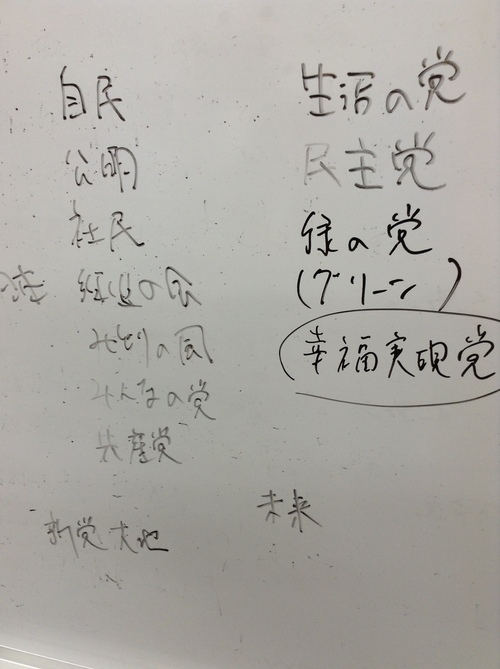 自民
公明
社民
の会
みどりの風
みんなの党
共産党
新党大地
生活の党
民主党
緑の党
(グリーン)
幸福実現党
未来